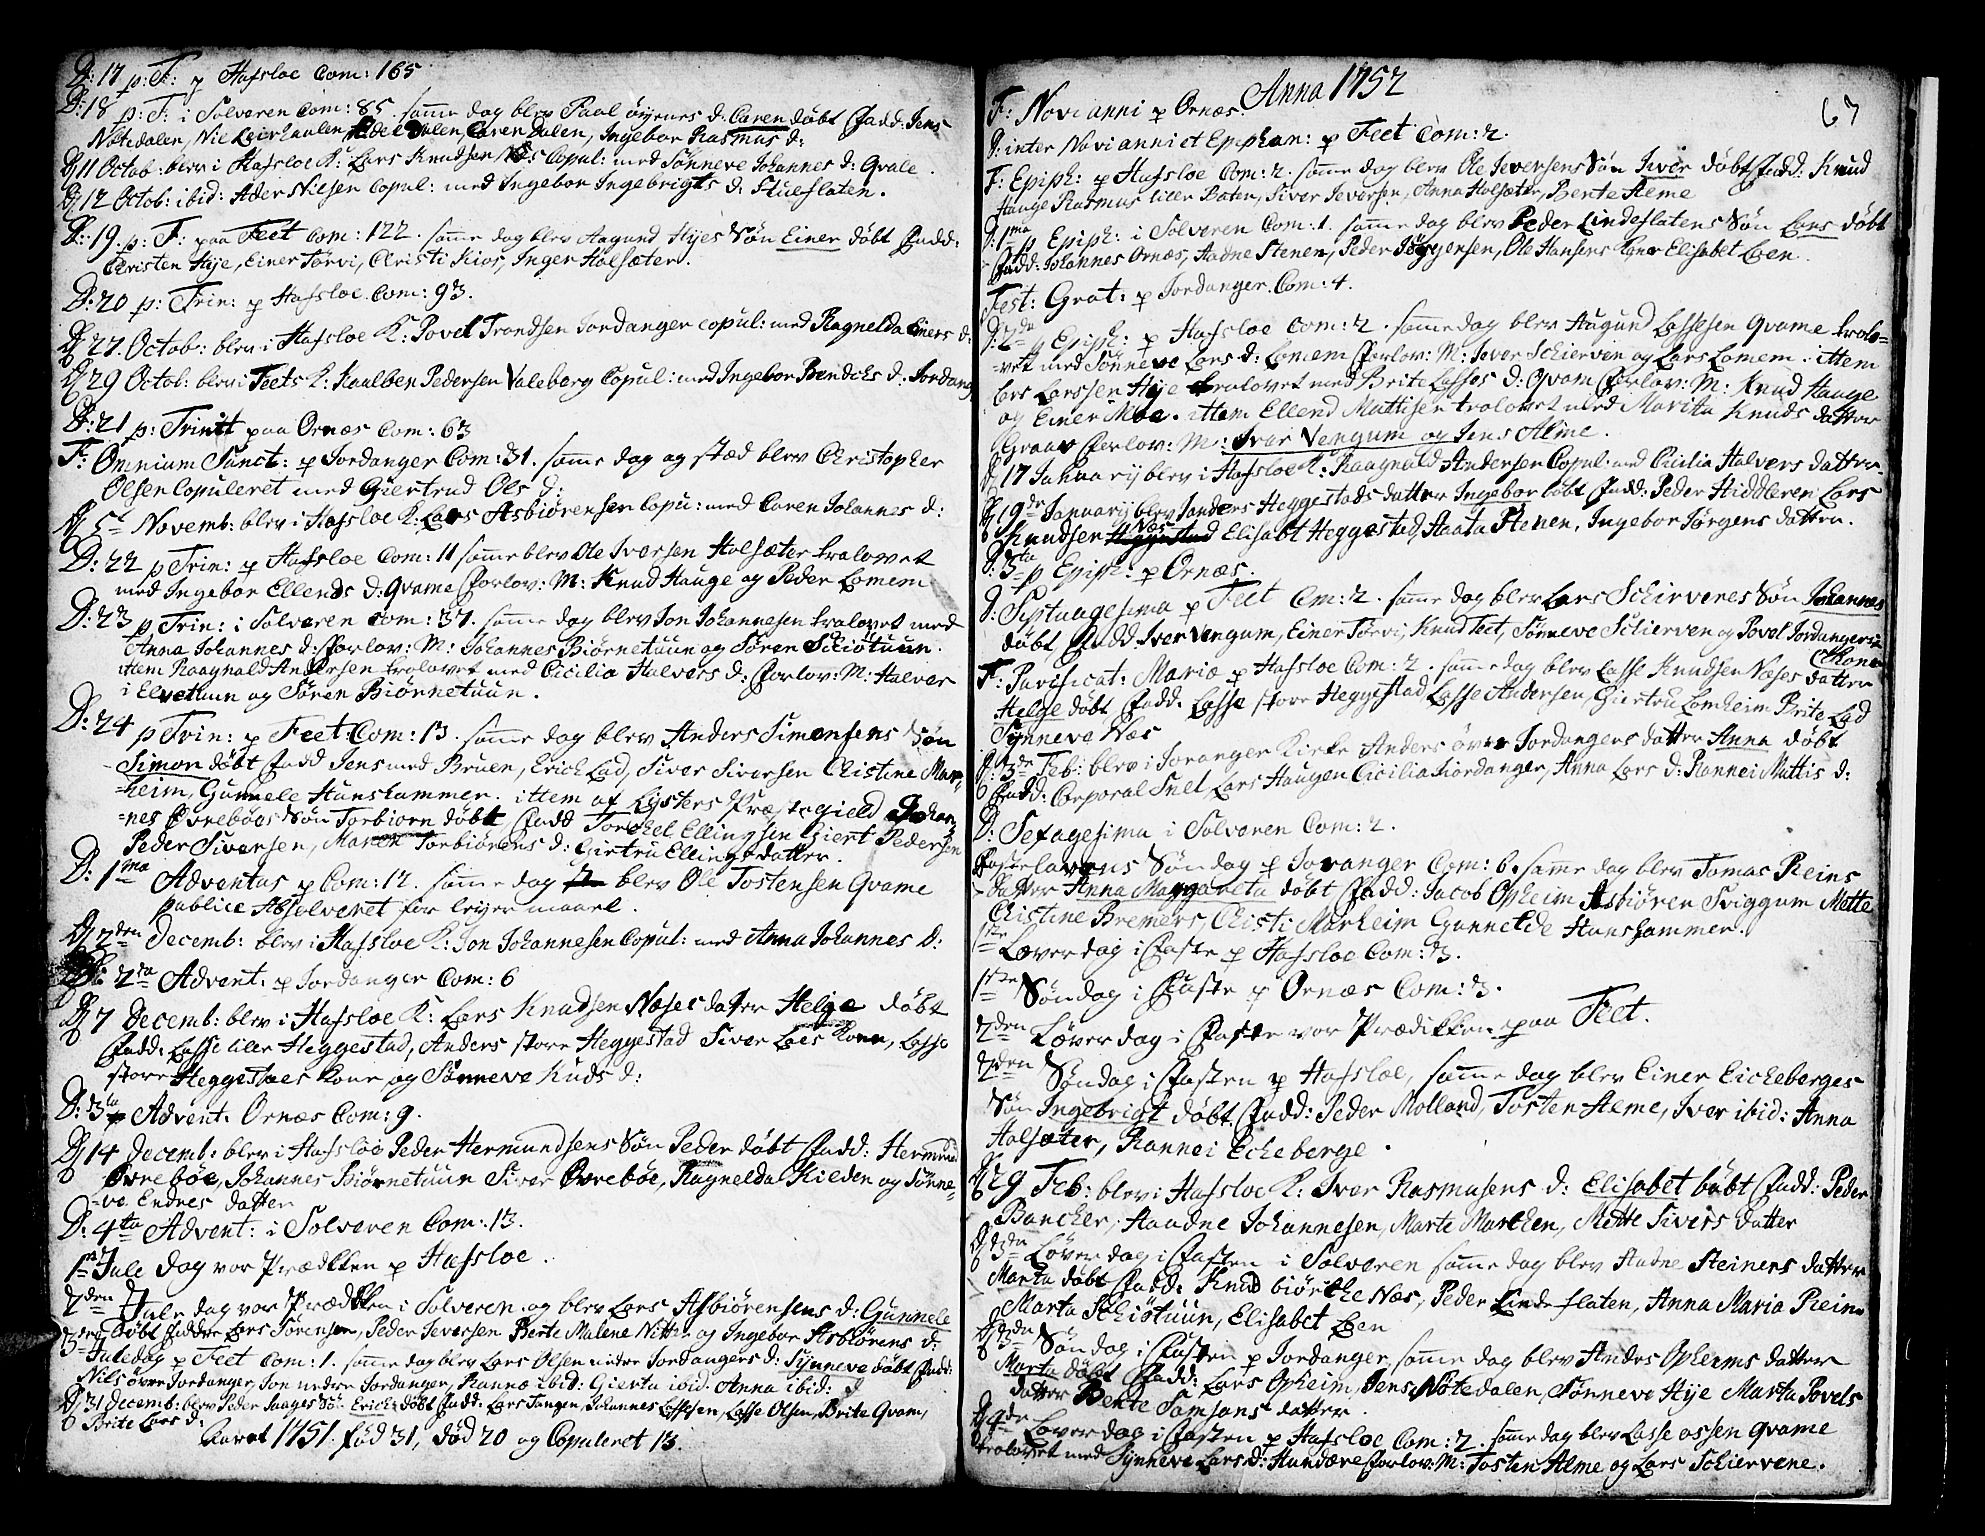 D: 17 p: T: p Hafsloe Com: 165
D: 18 p: T: i Solvoren Com: 85. samme dag blev Paal øyenes d: Caren døbt Fadd: Jens
Nøtedalen, Nil Leirhaulen, Peder Dalen, Caren Dalen, Ingebor Rasmus d:
D 11 Octob: blev i Hafsloe K: Lars Knudsen Næs Copul: med Sønneve Johannes d: Qvale.
D 12 Octob: ibid: Ader Nilsen Copul: med Ingebor Ingebrigts d: Stueflaten.
D: 19. p: T: paa Feet Com: 122. samme dag blev Aagund Hyes Søn Einer døbt Fadd:
Christen Hye, Einer Tørvi, Christi Kior, Inger Halsæter.
D: 20 p: Trin: p Hafsloe Com: 93.
D 27. Octob: blev i Hafsloe K: Povel Trondsen Jordanger copul: med Ragnelda Einers d:
D 29 Octob: blev i Feets K: Kaalben Pedersen Valeberg Copul: med Ingebor Bendchs d: Jordang
D: 21 p: Trinit paa Ornæs Com: 63
F: Omnium Sanct: p Jordanger Com: 31. samme dag og stæd blev Christopher
Olsen Copuleret med Giertrud Ols d:
D 5te Novemb: blev i Hafsloe K: Lars Asbiørensen Copu: med Caren Johannes d:
D: 22 p Trin: p Hafsloe Com: 11 samme blev Ole Iversen Halsæter trolovet
med Ingebor Ellends d: Qvame Forlov: M: Knud Hauge og Peder Lomem
D: 23 p Trin: i Solvoren Com: 37. samme dag blev Jon Johannesen trolovet med
Anna Johannes d: Forlov: M: Johannes Biørnetuun og Søren Schiøtuun.
ittem Raagnald Andersen trolovet med Cicilia Halvers d: Forlov: M: Halver
i Elvetuun og Søren Biørnetuun.
D: 24 p Trin: p Feet Com: 13. samme dag blev Anders Simensens Søn
Simon døbt Fadd Jens med Bruen, Erich Lad, Siver Siversen Christine Mar-
-heim, Gunnele Hunshammer. ittem af Lysters Præstegield Johan-
-nes Øvrebøes Søn Torbiorn døbt Fadd Torchel Ellingsen Giert Pedersen
Peder Siversen, Maren Torbiørens d: Girtru Ellings datter.
D: 1ma Adventus p Com: 12. samme dag blev Ole Tostensen Qvame
publice Absolveret for leyermaael.
D 2den Decemb: blev i Hafsloe K: Jon Johannesen Copul: med Anna Johannes d:
D: 2da Advent: p Jordanger Com: 6
D 7 Decemb: blev i Hafsloe K: Lars Knudsen Næses datter Helge døbt
Fadd: Lasse lille Heggestad, Anders store Heggestad Siver Loes Kone, Lasse
store Heggestaes Kone og Sønneve Kuds d:
D: 3ta p Advent. Ornæs Com: 9.
D 14 Decemb: blev i Hafsloe Peder Hermundsens Søn Peder døbt Fadd: Hermund
Øvrebøe, Johannes Biørnetuun Siver Øvrebøe, Ragnelda Kilden og Sønne-
-ve Endnes datter
D: 4ta Advent: i Solvoren Com: 13.
1ste Jule dag vor Prædiken p Hafsloe.
2den Jule dag vor Prædiken i Solvoren og blev Lars Asbiørensens d: Gunnele
døbt Fadder Lars Sørensen, Peder Ieversen Berte Malene Nitter og Ingebor Asbiørens d:
3die Juledag p Feet Com: 1. samme dag blev Lars Olsen nedre Jordangers d: Synneve døbt Fadd:
Nils øver Jordanger, Jon nedre Jordanger, Rannæ ibid: Gierta ibid. Anna ibid: d
D 31 Decemb: blev Peder Haages Søn Erich døbt Fadd: Lars Tangen, Johannes Lassesen, Lasse Olsen, Brite Qvam,
Brite Lars d:
Aaret 1751. fød 31, død 20 og Copuleret 13.
Anna 1752
67
F: Novi anni p Ornæs.
D: inter Novi anni et Epiphan: p Feet Com: 2.
F: Epiph: p Hafsloe Com: 2. samme dag blev Ole Ieversens Søn Iver døbt Fadd: Knud
Hauge Rasmus lille Baten, Siver Ieversen, Anna Halsæter, Bente Alme
D: 1ma p Epiph: i Solvoren Com: 1. samme dag blev Peder Lindeflatens Søn Lars døbt
Fadd: Johannes Ornæs, Aadne Stenen, Peder Jørgensen, Ole Hansens Kone Elisabet Loen.
Fest: Grat: p Jordanger. Com: 4.
D: 2da p Epiph: p Hafsloe Com: 2. samme dag blev Augund Lassesen Qvame trolo-
-vet med Sønneve Lars d: Lomem Forlov: M: Iver Schierven og Lars Lomem. ittem
Lars Larssen Hye trolovet med Brite Lasses d: Qvam Forlov: M: Knud Hauge
og Einer Moe. ittem Ellend Mattisen trolovet med Marita Knuds datter
Graav Forlov: M: Ivar Vengum og Jens Alme.
D 17 Januarij blev i Hafsloe K: Raagnald Andersen Copul: med Cicilia Halvers datter.
D 19de Januarij blev Anders Heggestads datter Ingebor døbt Fadd: Peder Hiddleren Lars
Knudsen Næs Elisabt Heggestad, Aaata Stenen, Ingebor Jørgens datter.
D: 3tia p Epiph: p Ornæs.
D: Septuagesima p Feet Com: 2. samme dag blev Lars Schirvenes Søn Johannes
døbt, Fadd: Iver Vengum, Einer Tørvi, Knud Feet, Sønneve Schierven og Povel Jordangers
Kone
F: Purificat: Mariæ p Hafsloe Com: 2. samme dag blev Lasse Knudsen Næses datter
Helge døbt Fadd. Lasse store Heggestad Lasse Andersen, Giertru Lomheim Brite Lad
Synneve Næs
D: 3de Feb: blev i Joranger Kirke Anders øvre Jordangers datter Anna døbt
Fadd: Corporal Snel, Lars Haugen Cicilia Jordanger, Anna Lars d: Rannei Mattis d:
D: Sexagesima i Solvoren Com: 2.
Fastelavens Søndag p Joranger Com: 6. samme dag blev Tomas Reins
datter Anna Margareta døbt Fadd: Jacob Opheim Asbiøren Sviggum Mette
Christine Bremers, Christi Marheim Gunnelde Hunshammer.
1ste Løverdag i Faste p Hafsloe Com: 3.
1ste Søndag i Faste p Ornæs Com: 3.
2den Løverdag i Faste vor Prædikken paa Feet.
2den Søndag i Fasten p Hafsloe, samme dag blev Einer Eickeberges
Søn Ingebrigt døbt Fadd: Peder Molland, Tosten Alme, Iver ibid: Anna
Halsæter, Rannei Eckeberge.
D 29 Feb: blev i Hafsloe K: Iver Rasmusens d: Elisabet døbt Fadd: Peder
Bancker, Aadne Johannesen, Marte Marthen, Mette Sivers datter
D 3de Løverdag i Fasten i Solvoren samme dag blev Aadne Steiners datter
Marta døbt Fadd: Knud biørthe Næs, Peder Lindeflaten, Anna Maria Rein
Marta Schistuun, Elisabet Loen
D 3de Søndag i Fasten p Jordanger, samme dag blev Andes Opheims datter
Marta døbt Fadd: Lars Opheim, Jens Nøtedalen, Sønneve Hye Marta Povels
datter Bente Samsons datter.
D 4de Løverdag i Fasten p Hafsloe Com: 2. samme dag blev Lasse ossen Qvame
trolovet med Synneve Lars d: Hundære Forlov: M: Tosten Alme og Lars Schiervene.